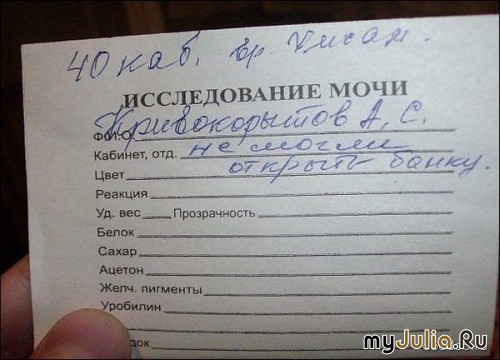 40 каб. вр. Чигам.
ИССЛЕДОВАНИЕ МОЧИ
Ф.И.О. Кривокорытов А. С.
Кабинет, отд. не смогли
Цвет открыть банку.
Реакция
Уд. вес Прозрачность
Белок
Сахар
Ацетон
Желч. пигменты
Уробилин
док
myJulia.Ru